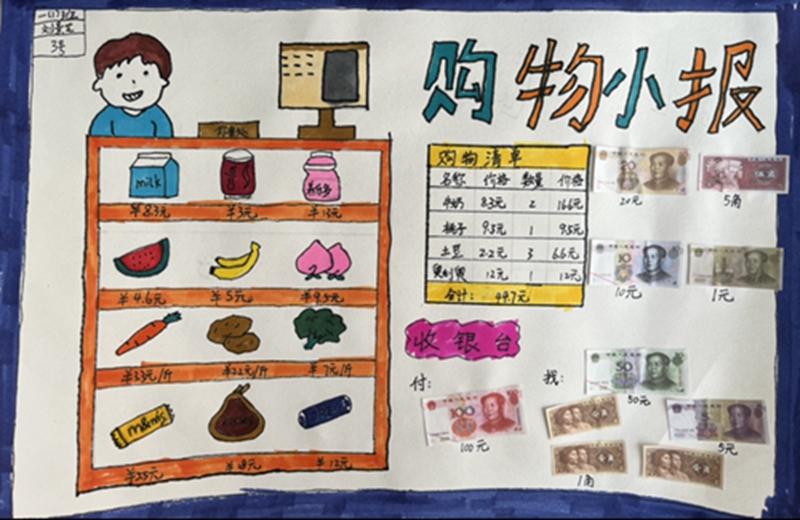 3号
购物小报
milk
￥8.3元 ￥3元 ￥13元
￥4.6元 ￥5元 ￥9.5元
￥3.3元/斤 ￥2.2元/斤 ￥7元/斤
m&m's
￥12元
购物清单
名称 价格 数量 价格
牛奶 8.3元 2 16.6元
桃子 9.5元 1 9.5元
土豆 2.2元 3 6.6元
奥利奥 12元 1 12元
合计: 44.7元
20元 5角
10元 1元
收银台
付: 找:
100
100元
50
50元
5元
1角